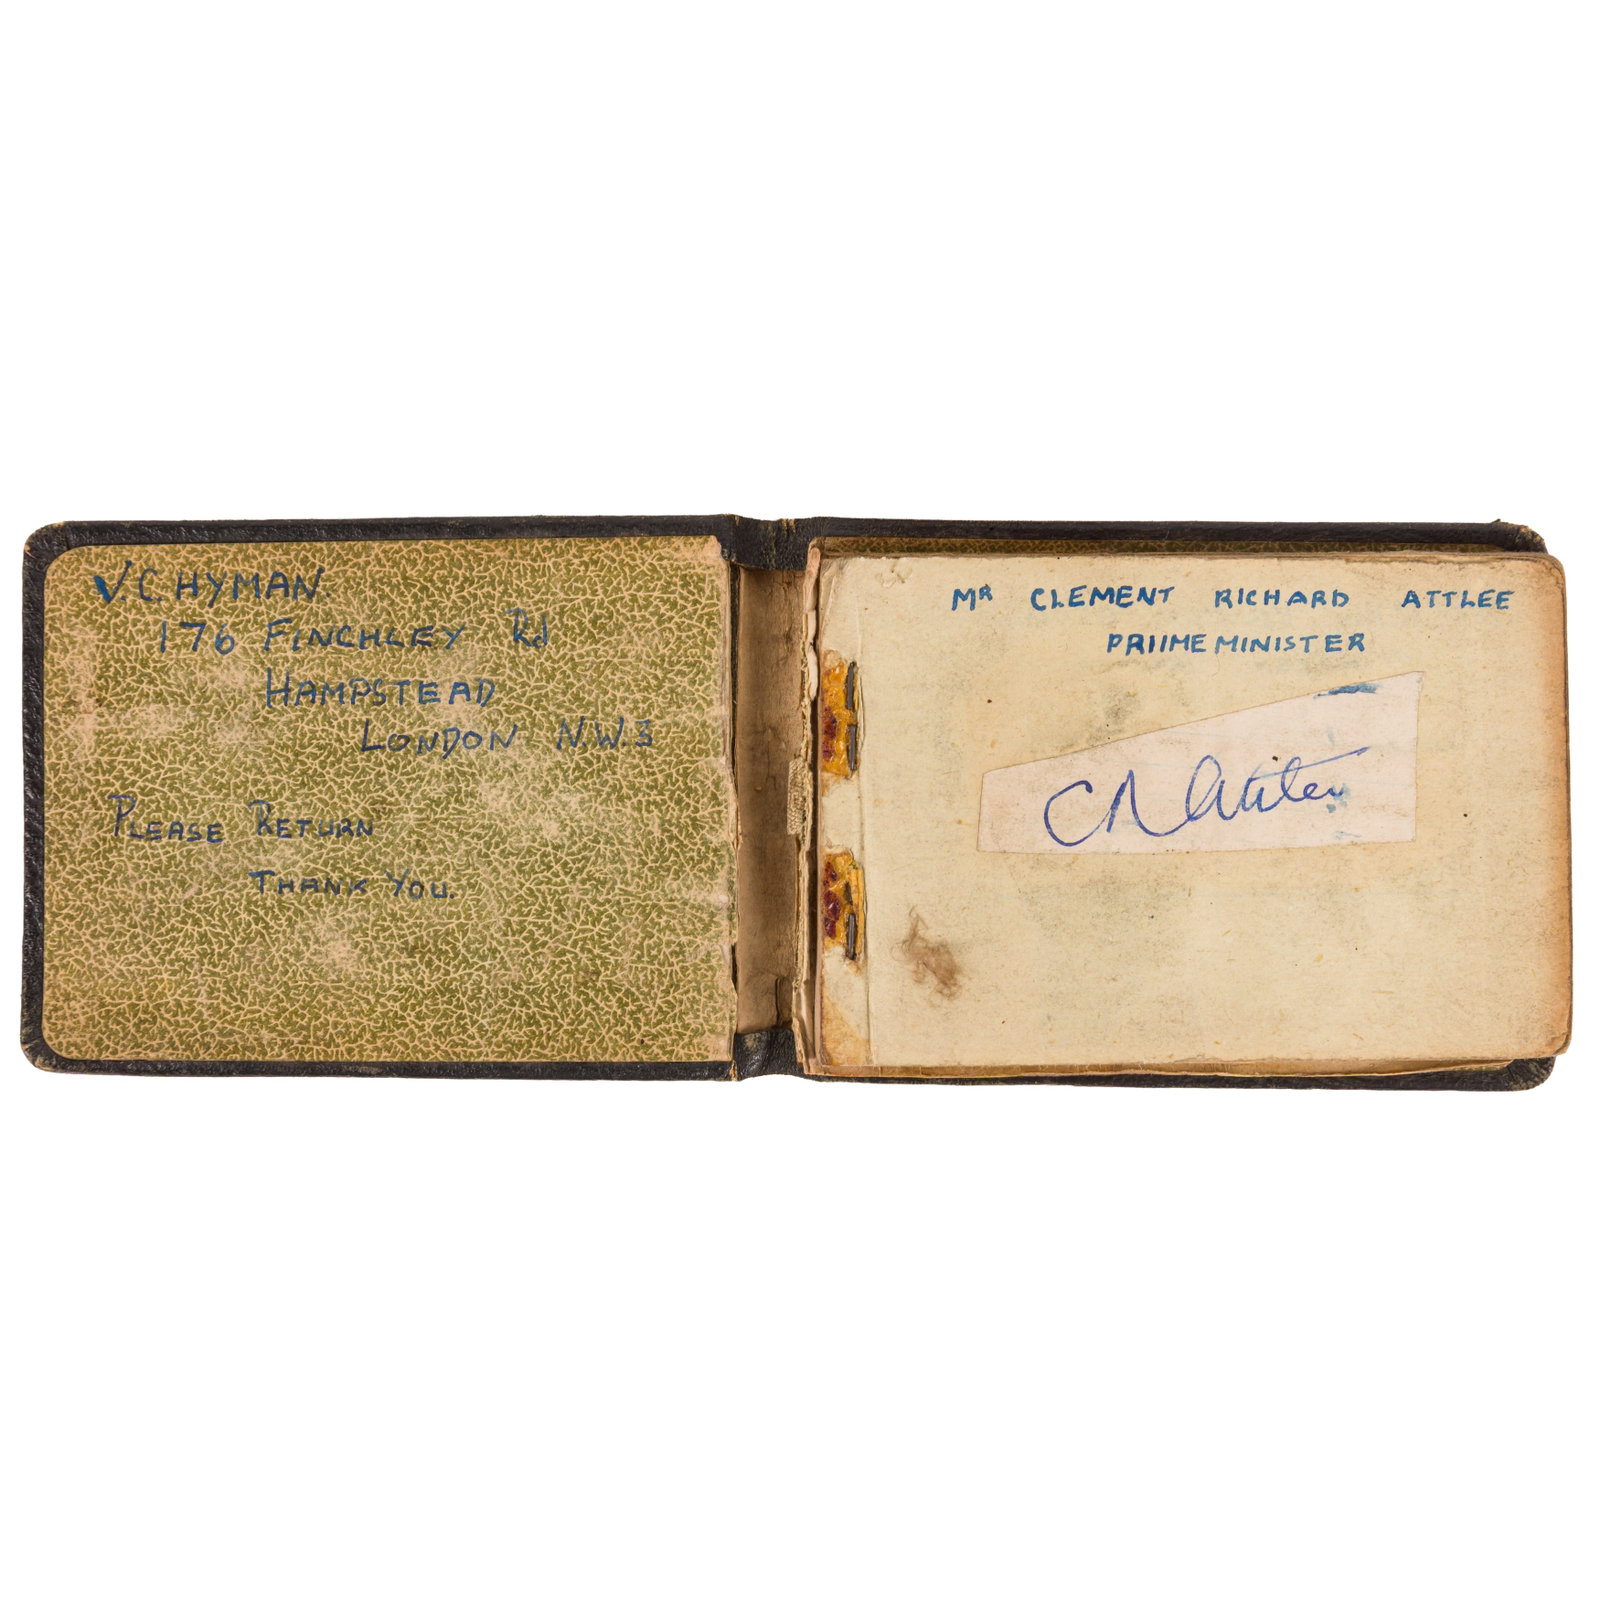 V.C. HYMAN.
176 FINCHLEY Rd
HAMPSTEAD
LONDON N.W.3
PLEASE RETURN
THANK YOU.
MR CLEMENT RICHARD ATTLEE
PRIIME MINISTER
CR Attlee